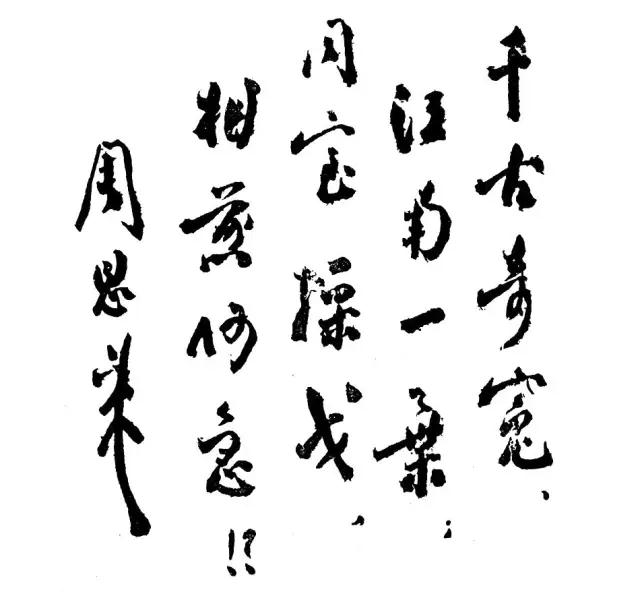 千古奇冤、
江南一葉；
同室操戈，
相煎何急！？
周恩来